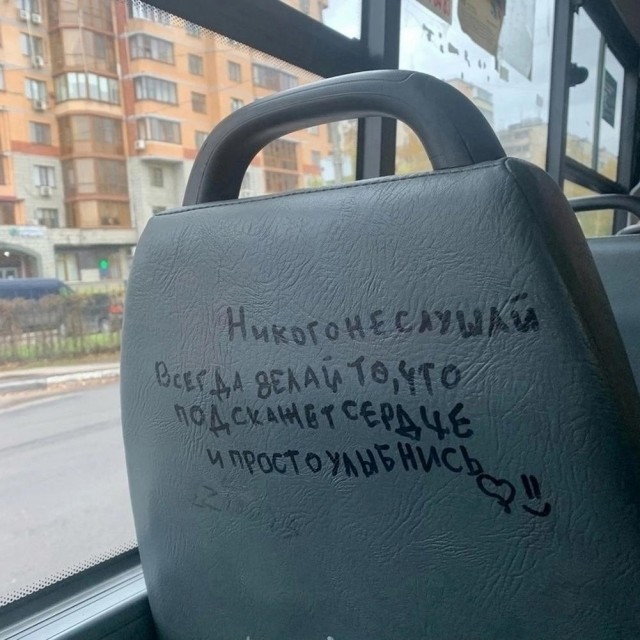 Никого не слушай
Всегда делай то, что
подскажет сердце
и просто улыбнись